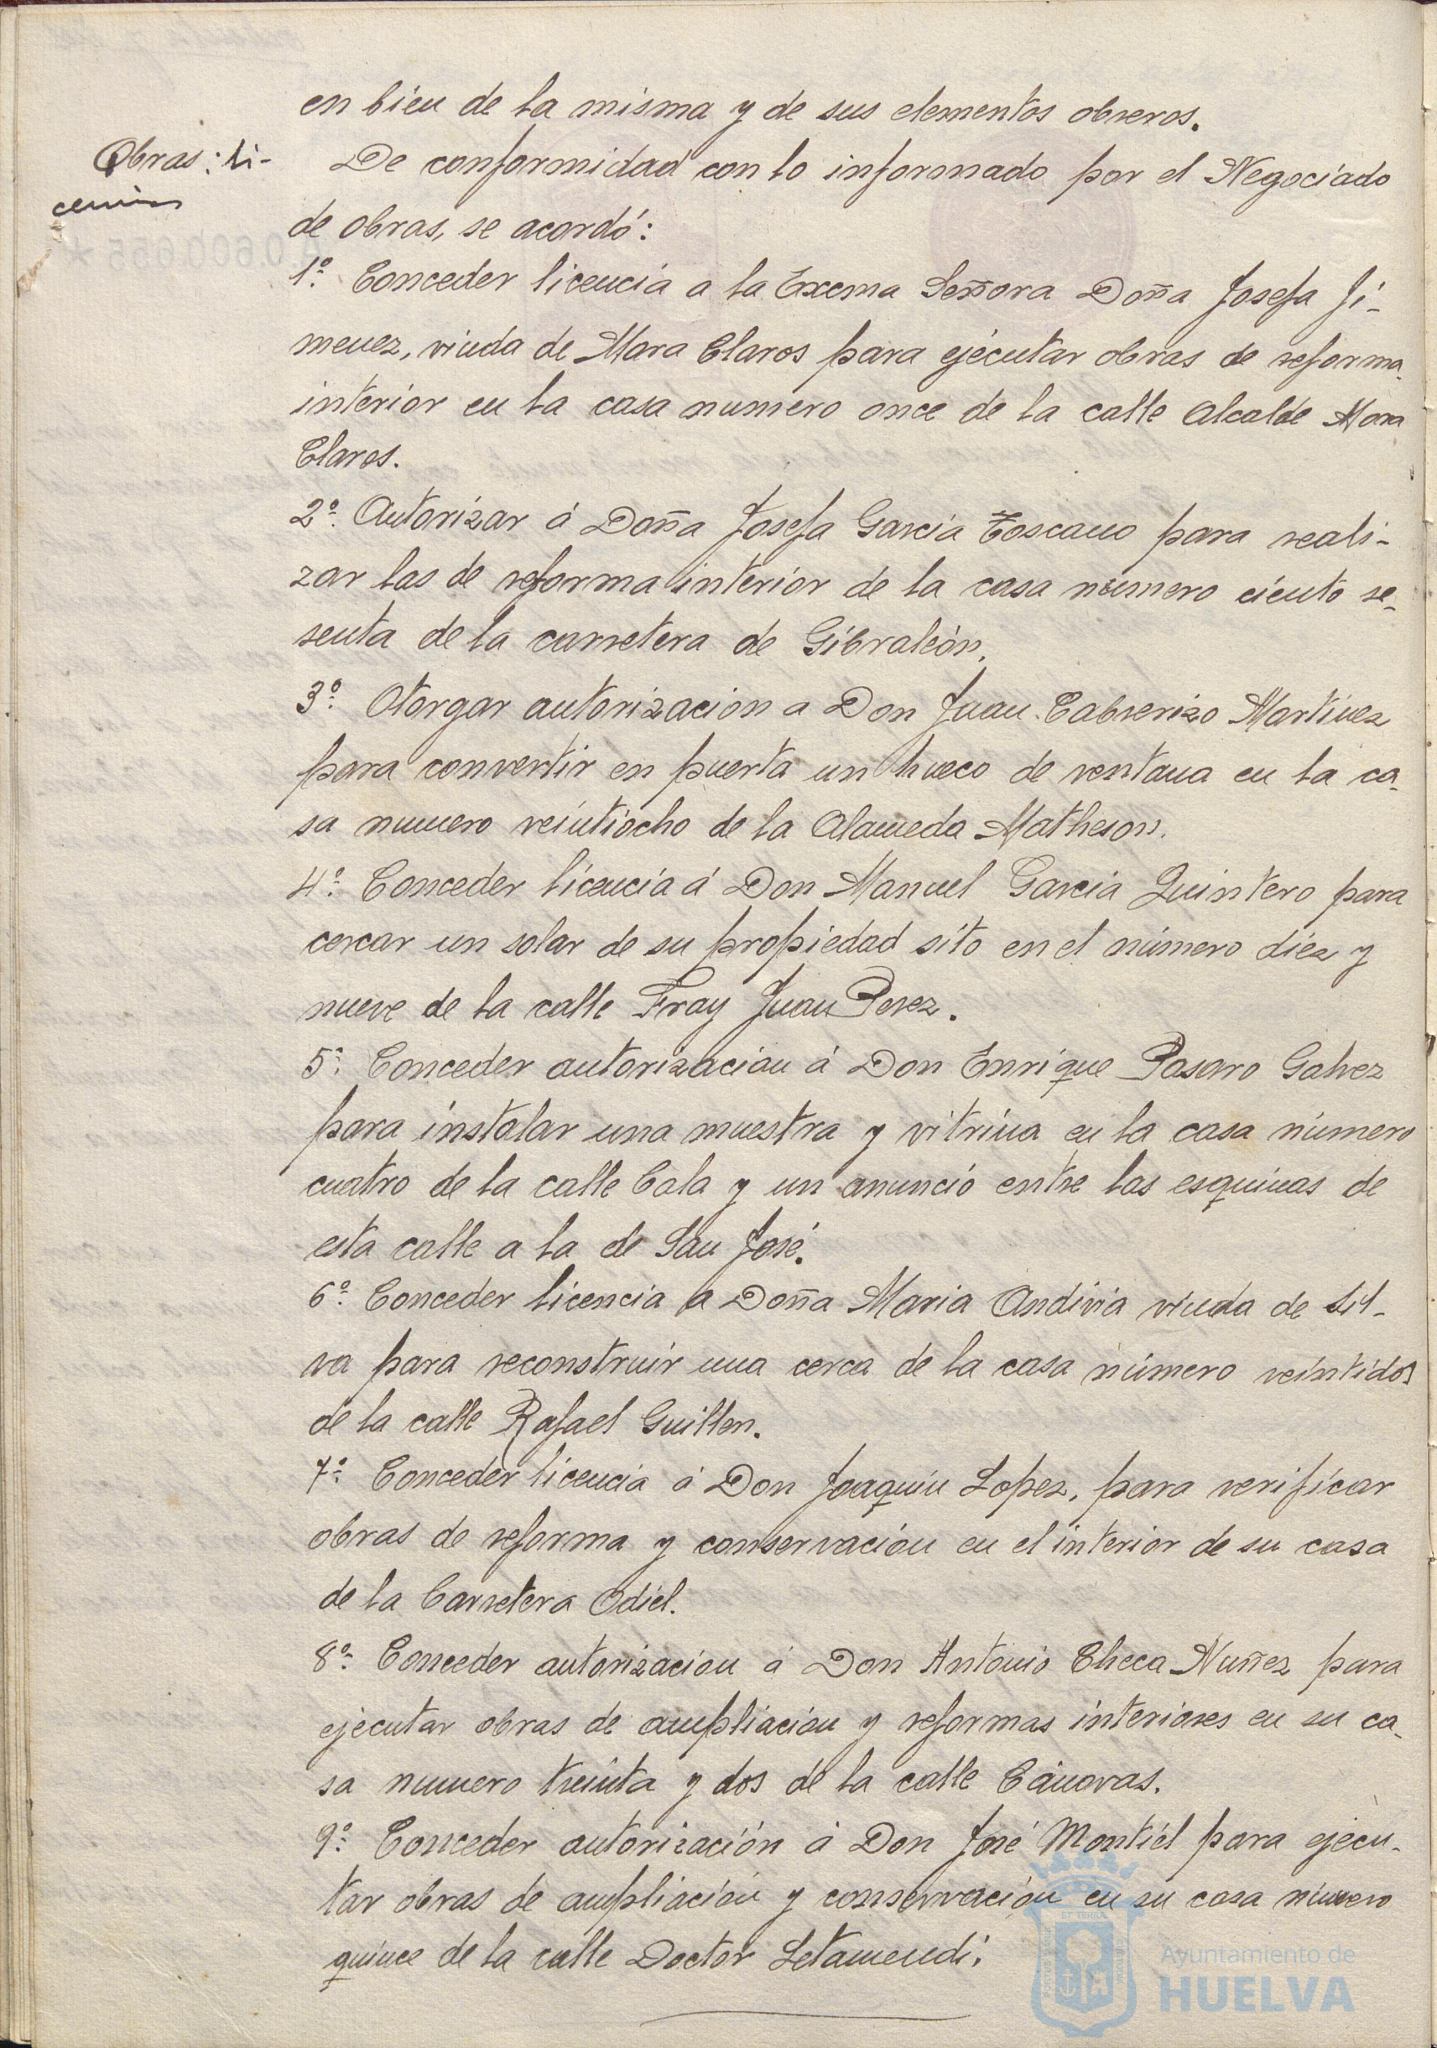 en bien de la misma y de sus elementos obreros.
Obras: li-
cencias
De conformidad con lo informado por el Negociado
de obras, se acordó:
1º. Conceder licencia a la Excma Señora Doña Josefa Ji-
menez, viuda de Mora Claros para ejecutar obras de reforma
interior en la casa numero once de la calle Alcalde Mora
Claros.
2º. Autorizar á Doña Josefa Garcia Toscano para reali-
zar las de reforma interior de la casa número ciento se-
senta de la carretera de Gibraleón.
3º. Otorgar autorización a Don Juan Cabrerizo Martinez
para convertir en puerta un hueco de ventana en la ca-
sa numero veintiocho de la Alameda Matheson.
4º. Conceder licencia á Don Manuel Garcia Quintero para
cercar un solar de su propiedad sito en el número diez y
nueve de la calle Fray Juan Perez.
5º. Conceder autorizacion á Don Enrique Pasaro Galvez
para instalar una muestra y vitrina en la casa número
cuatro de la calle Cala y un anuncio entre las esquinas de
esta calle a la de San José.
6º. Conceder licencia a Doña Maria Andivia viuda de Sil-
va para reconstruir una cerca de la casa número veintidos
de la calle Rafael Guillen.
7º. Conceder licencia á Don Joaquin Lopez, para verificar
obras de reforma y conservación en el interior de su casa
de la Carretera Odiel.
8º. Conceder autorizacion á Don Antonio Checa Nuñez para
ejecutar obras de ampliacion y reformas interiores en su ca-
sa numero treinta y dos de la calle Cánovas.
9º. Conceder autorización á Don José Montiel para ejecu-
tar obras de ampliación y conservación en su casa número
quince de la calle Doctor Letamendi.
Ayuntamiento de
HUELVA